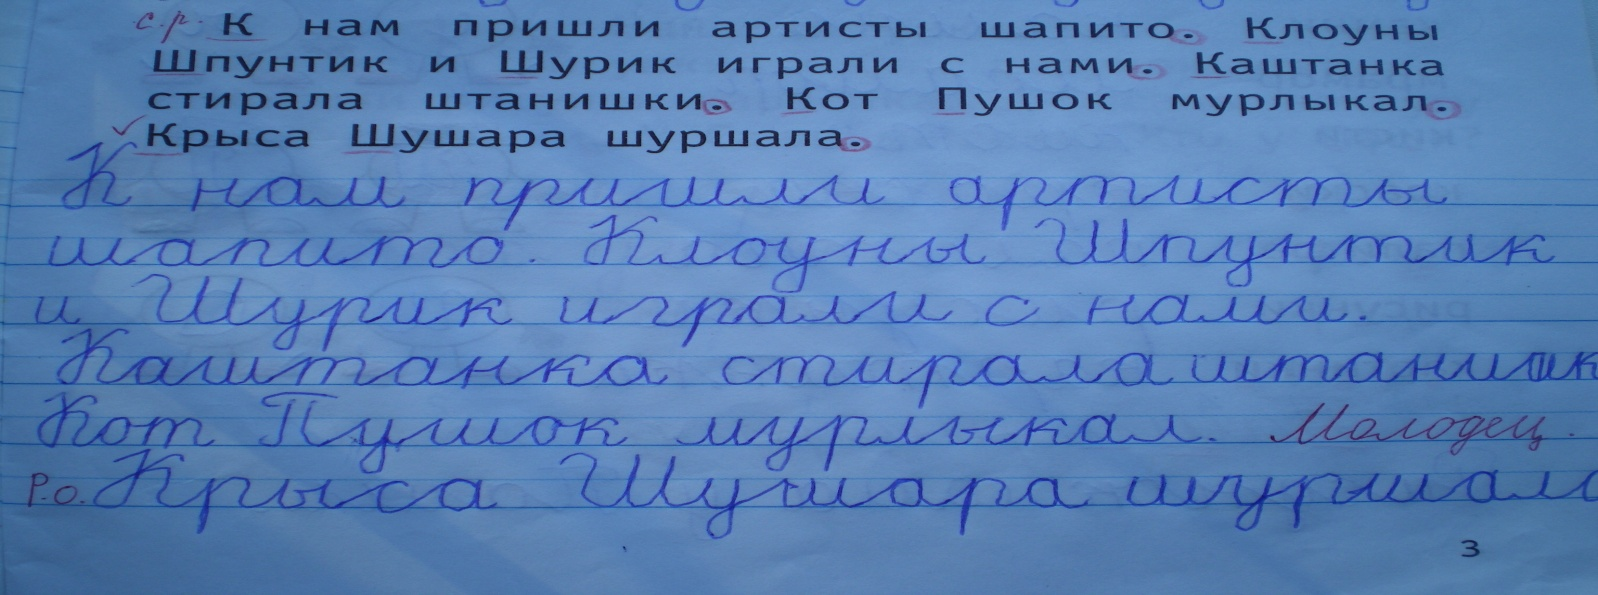 с.р. К нам пришли артисты шапито. Клоуны
Шпунтик и Шурик играли с нами. Каштанка
стирала штанишки. Кот Пушок мурлыкал.
Крыса Шушара шуршала.
К нам пришли артисты
шапито. Клоуны Шпунтик
и Шурик играли с нами.
Каштанка стирала штанишк
Кот Пушок мурлыкал. Молодец.
Р.о. Крыса Шушара шуршала
3